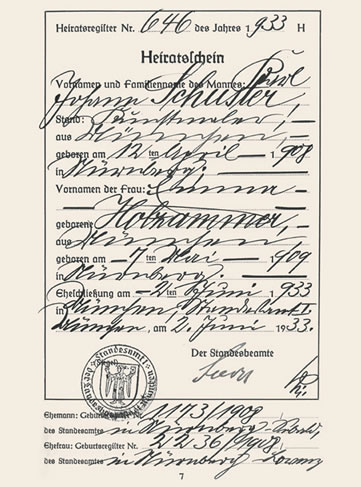 Heiratsregister Nr. 646 des Jahres 1933 H
Heiratsschein
Vornamen und Familienname des Mannes: Karl
Johann Schuster, —
Stand: Kunstmaler, —
aus München, —
geboren am 12 ten April — 1908
in Nürnberg; —
Vornamen der Frau: Emma —
geborene Holzammer, —
aus München, —
geboren am — 7 ten Mai — 1909
in Nürnberg. —
Eheschließung am — 2 ten Juni 1933
in München, Standesamt I
München, am 2. Juni 1933.
Der Standesbeamte
Standesamt
Ehemann: Geburtsregister Nr. 1173/1908
des Standesamtes in Nürnberg
Ehefrau: Geburtsregister Nr. 2236
des Standesamtes in Nürnberg
7